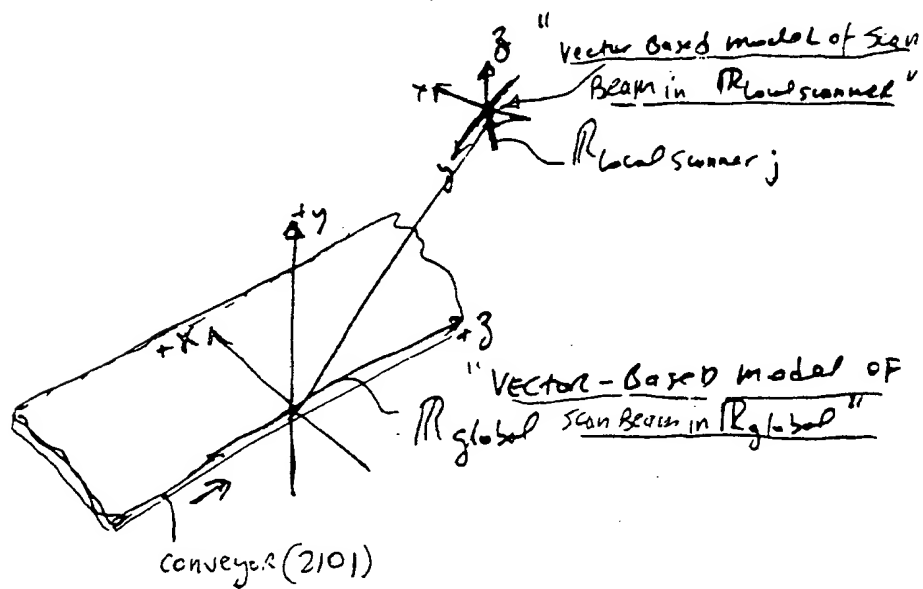 z
"Vector Based model of Scan
Beam in ℝ local scanner"
x
ℝ local scanner j
y
+y
+x
+z
"Vector-Based model of
Scan Beam in ℝ global"
ℝ global
conveyor (2101)